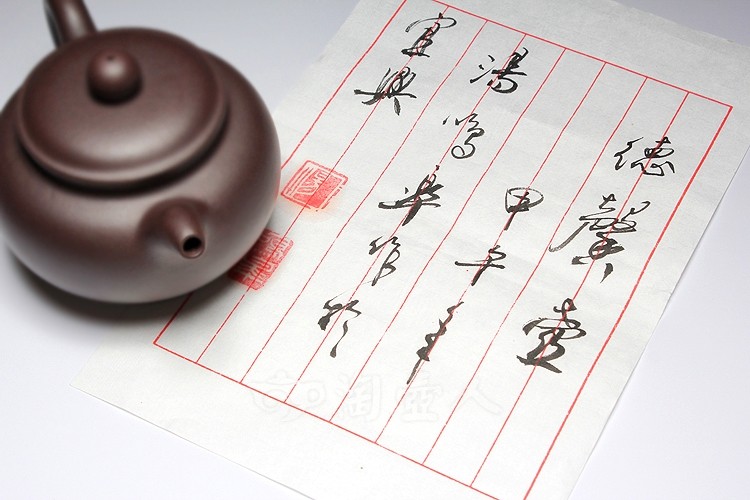 德馨壺
甲午年
湯鳴皋作於
宜興
淘壶人